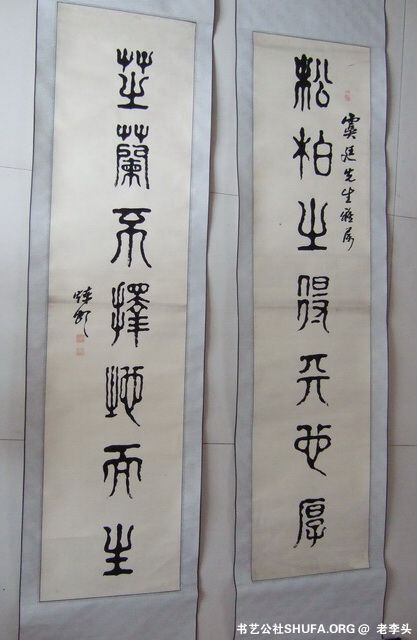 松柏之得天也厚
虞廷先生雅屬
芝蘭不擇地而生
书艺公社SHUFA.ORG @ 老李头